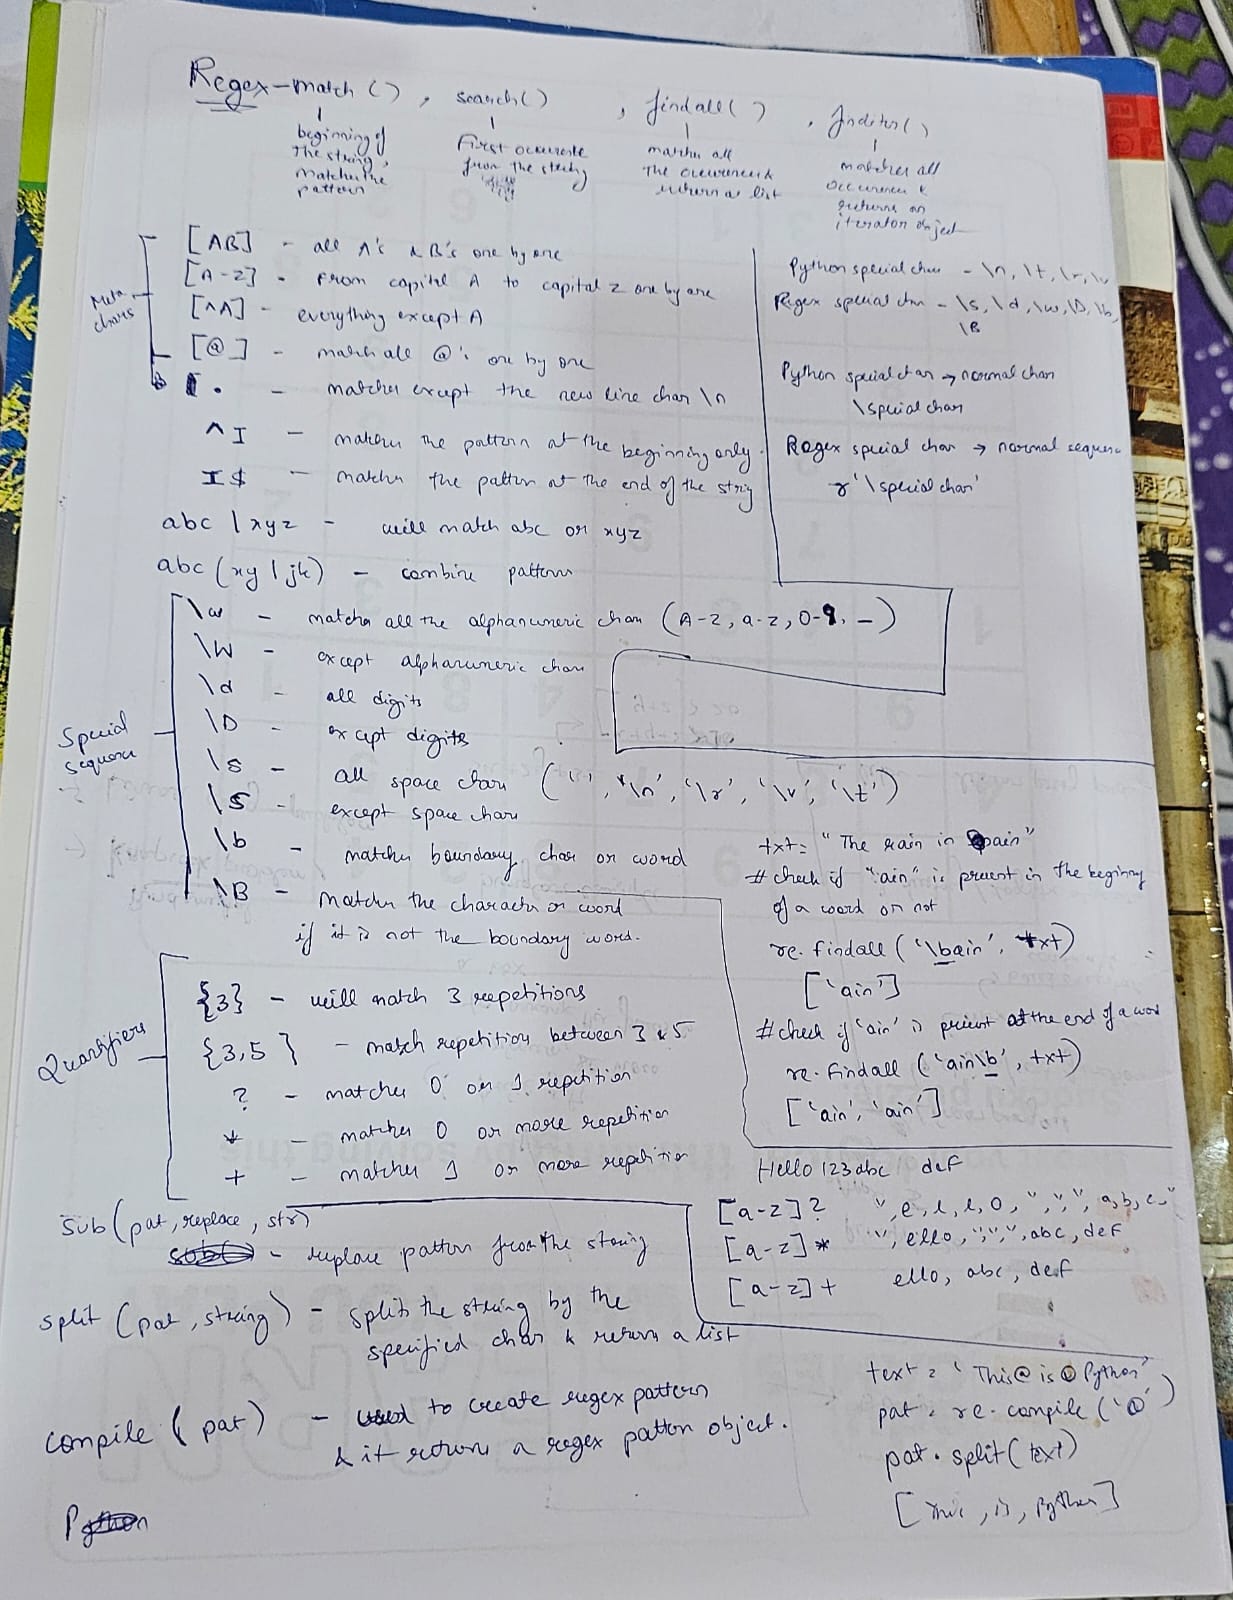 Regex-match() , search() , findall() , finditer()
beginning of
the string,
matches the
pattern
First occurence
from the string
matches all
the occurrence &
return as list
matches all
occurrence &
returns an
iterator object
Meta
chars
[AB] - all A's & B's one by one
[A-Z] - From capital A to capital Z one by one
[^A] - everything except A
[@] - match all @'s one by one
. - matches except the new line char \n
^I - matches the pattern at the beginning only.
I$ - matches the pattern at the end of the string
abc | xyz - will match abc or xyz
abc (xy | jk) - combine pattern
Python special char - \n, \t, \r, \v
Regex special char - \s, \d, \w, \D, \b,
\B
Python special char → normal char
\special char
Regex special char → normal sequence
r'\special char'
Special
sequence
\w - matches all the alphanumeric char (A-Z, a-z, 0-9, _)
\W - except alphanumeric char
\d - all digits
\D - except digits
\s - all space char (' ', '\n', '\r', '\v', '\t')
\S - except space char
\b - matches boundary char or word
\B - matches the character or word
if it is not the boundary word.
txt = "The rain in Spain"
# check if "ain" is present in the beginning
of a word or not
re.findall('\bain', txt)
['ain']
# check if 'ain' is present at the end of a word
re.findall('ain\b', txt)
['ain', 'ain']
Quantifiers
{3} - will match 3 repetitions
{3,5} - match repetition between 3 & 5
? - matches 0 or 1 repetition
* - matches 0 or more repetition
+ - matches 1 or more repetition
Hello 123 abc def
[a-z]? '', e, l, l, o, '', '', '', a, b, c, ''
[a-z]* '', ello, '', '', '', abc, def
[a-z]+ ello, abc, def
sub(pat, replace, str)
- replace pattern from the string
split (pat, string) - split the string by the
specified char & return a list
compile (pat) - used to create regex pattern
& it returns a regex pattern object.
text = 'This@is@Python'
pat = re.compile('@')
pat.split(text)
[This, is, Python]